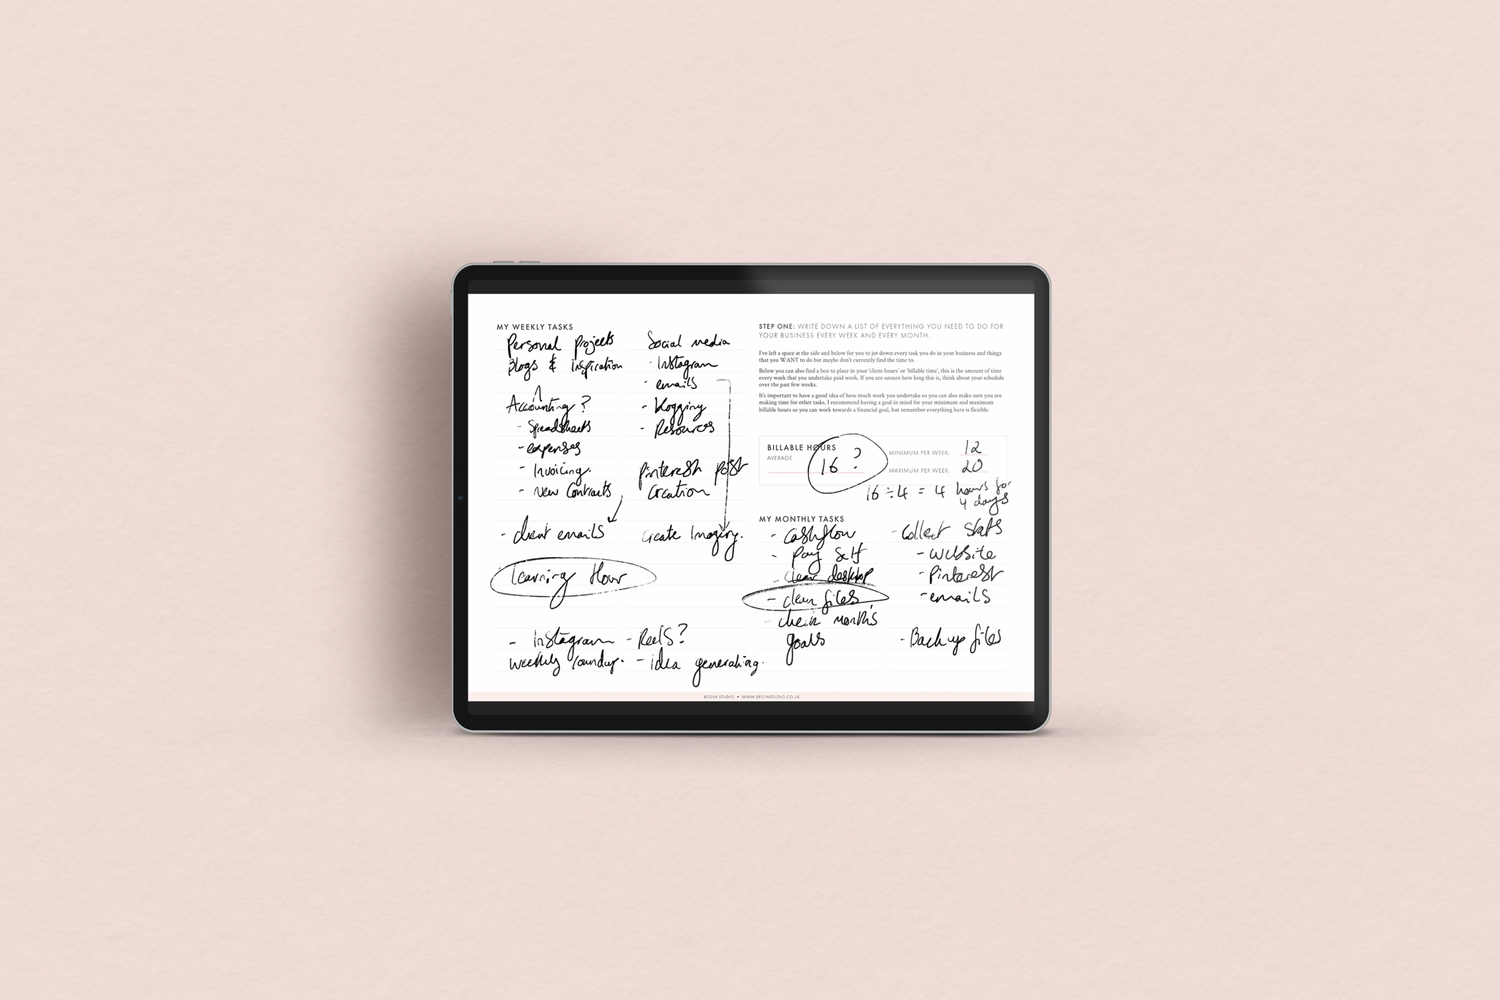 MY WEEKLY TASKS
Personal Projects
Blogs & Inspiration
Accounting?
- Spreadsheets
- expenses
- Invoicing.
- New Contracts
- client emails
Learning Hour
- Instagram
weekly roundup.
Social media
- Instagram
- emails
- blogging
- Resources
Pinterest post
creation
create Imagery.
- Reels?
- idea generating.
STEP ONE: WRITE DOWN A LIST OF EVERYTHING YOU NEED TO DO FOR
YOUR BUSINESS EVERY WEEK AND EVERY MONTH.
I've left a space at the side and below for you to jot down every task you do in your business and things
that you WANT to do but maybe don't currently find the time to.
Below you can also find a box to place in your 'client hours' or 'billable time', this is the amount of time
every week that you undertake paid work. If you are unsure how long this is, think about your schedule
over the past few weeks.
It's important to have a good idea of how much work you undertake so you can also make sure you are
making time for other tasks. I recommend having a goal in mind for your minimum and maximum
billable hours so you can work towards a financial goal, but remember everything here is flexible.
BILLABLE HOURS
AVERAGE
16 ?
MINIMUM PER WEEK: 12
MAXIMUM PER WEEK: 20
16 ÷ 4 = 4 hours for
4 days
MY MONTHLY TASKS
- Cashflow
- Pay Self
- clear desktop
- clean files
- check month's
goals
- Collect Stats
- Website
- Pinterest
- emails
- Back up files
BEGIN STUDIO • WWW.BEGINSTUDIO.CO.UK